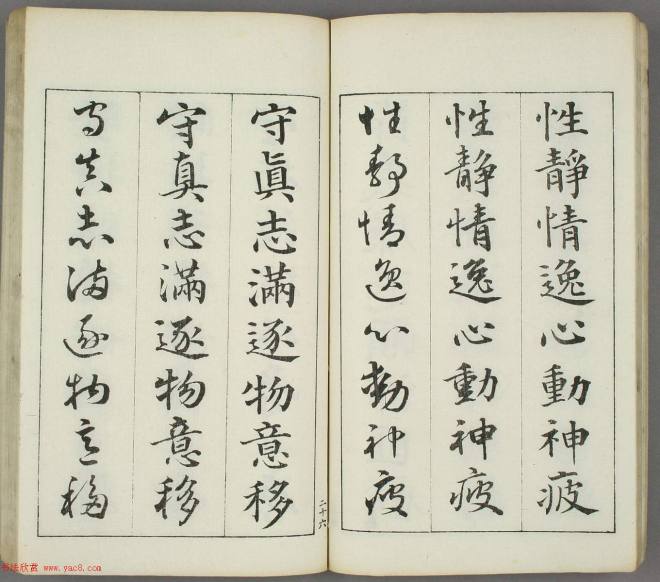 性靜情逸心動神疲
性靜情逸心動神疲
性靜情逸心動神疲
守眞志滿逐物意移
守真志滿逐物意移
守真志滿逐物意移
二十六
书法欣赏 www.yac8.com